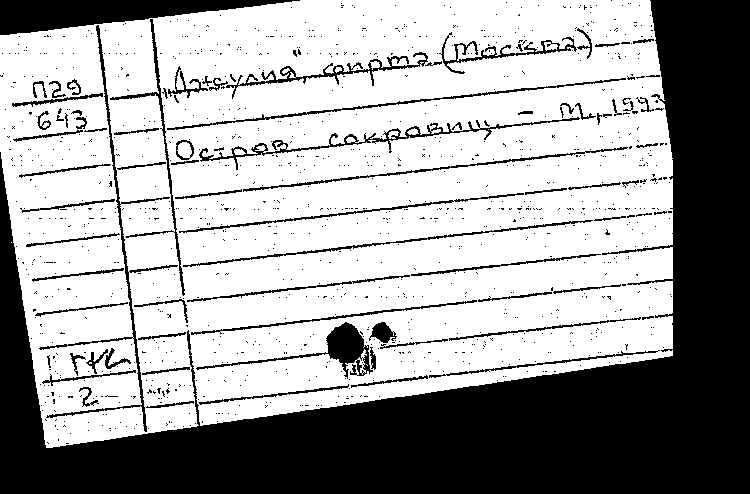 П29
643
„Джулия", фирма (Москва)
Остров сокровищ. – М., 1993
2